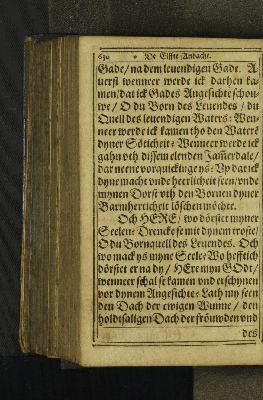 630 * De Elffte Andacht.
Gade/ na dem leuendigen Gade. A
uerst wenneer werde ick darhen ka
men/ dat ick Gades Angesichte schou-
we/ O du Born des Leuendes / du
Quell des leuendigen Waters: Wen-
neer werde ick kamen tho den Waterē
dyner Söticheit: Wenneer werde ick
gahn vth dissem elenden Jam̄erdale/
dar nene vorquickinge ys: Vp dat ick
dyne macht vnde herrlicheit seen/ vnde
mynen Dorst vth den Bornen dyner
Barmherticheit löschen möchte.
Och HERE/ wo dörstet myner
Seelen: Drencke se mit dynem troste/
O du Bornquell des Leuendes. Och
wo mack ys myne Seele: Wo hefftich
dörstet er na dy/ HEre myn GOdt/
wenneer schal se kamen vnd erschynen
vor dynem Angesichte: Lath my seen
den Dach der ewigen Wunne/ den
holdtsaligen Dach der fröuwden vnd
des